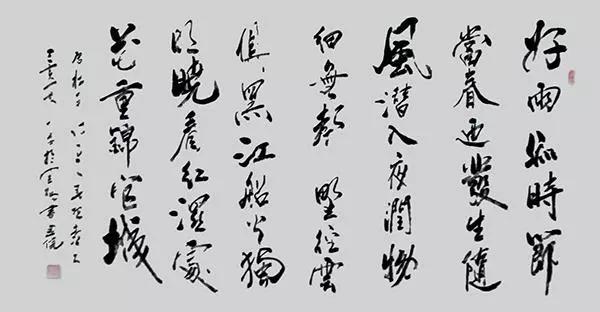 好雨知時節
當春迺發生隨
風潛入夜潤物
細無聲野徑雲
俱黑江船火獨
明曉看紅濕處
花重錦官城